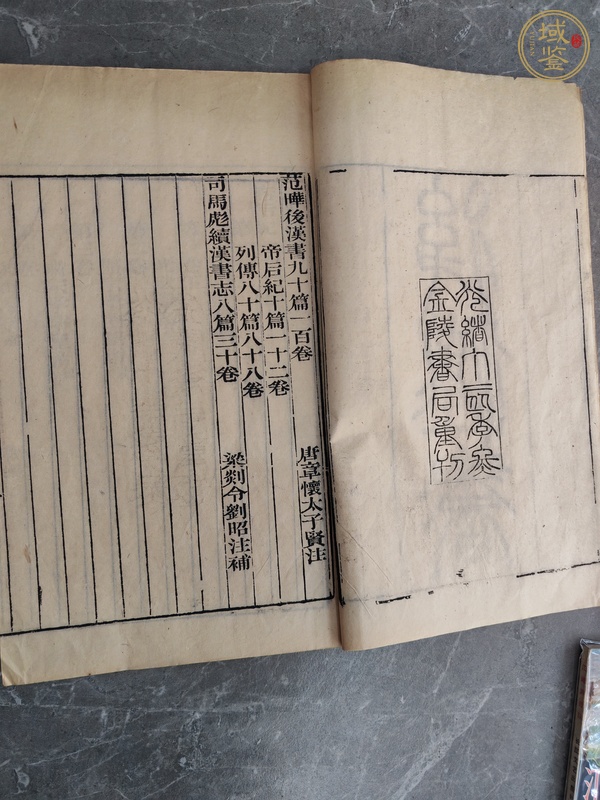 域鉴
光緒 季
金陵書局重刊
范曄後漢書九十篇一百卷
唐章懷太子賢注
帝后紀十篇一十二卷
列傳八十篇八十八卷
司馬彪續漢書志八篇三十卷
梁剡令劉昭注補